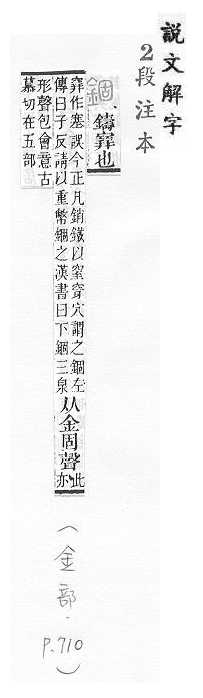 說文解字
2段注本
錮
、鑄𡫳也
𡫳作塞誤今正凡銷鐵以窒穿穴謂之錮左
傳曰子反請以重幣錮之漢書曰下錮三泉
从金固聲
此
亦
形聲包會意古
慕切在五部
(金部.
P.710)